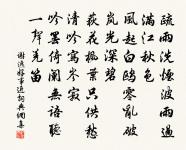 疏雨洗煙波雨過
滿江秋色
風起白鷗零亂破
嵐光深碧
荻花楓葉只供愁
清吟寫岑寂
吟罷倚闌無語聽
一聲羌笛
謝逸好事近詞典網集